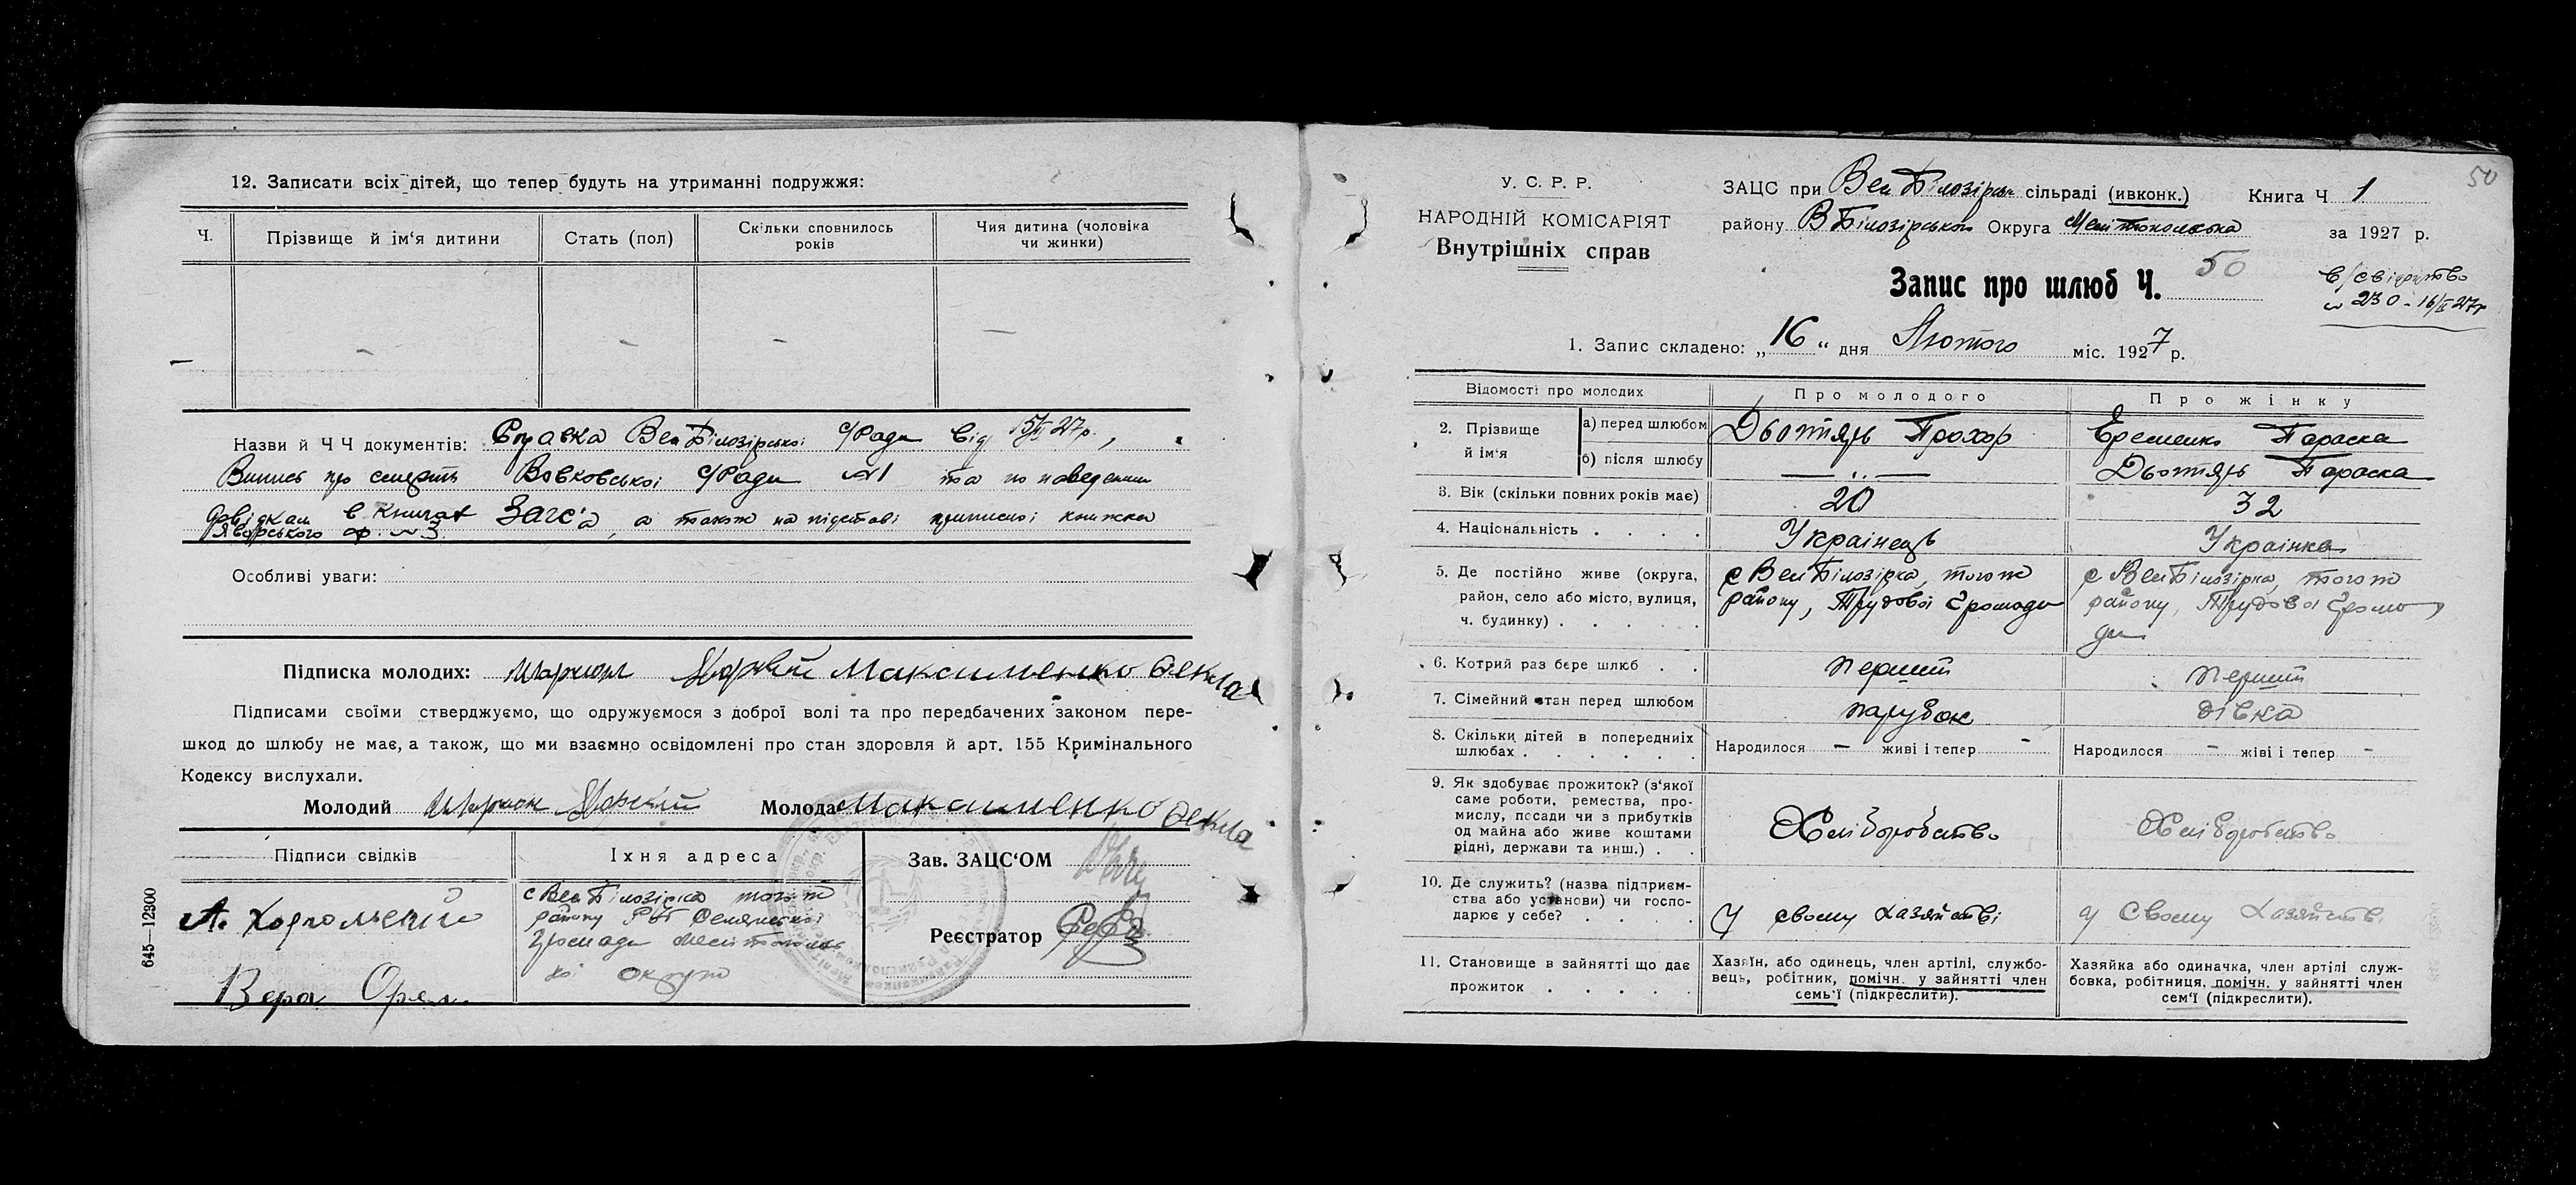 12. Записати всіх дітей, що тепер будуть на утриманні подружжя:
Ч.
Прізвище й ім‘я дитини
Стать (пол)
Скільки сповнилось
років
Чия дитина (чоловіка
чи жинки)
Назви й Ч Ч документів: Справка Вел Білозірської С/Ради від 15/II 27р.,
Випись про смерть Вовковської С/Ради №1 та по наведеним
довідкам в книгах Загс'а, а також на підставі приписної книжки
Яворського ф. №3.
Особливі уваги:
Підписка молодих: Максименко Текла
Підписами своїми стверджуємо, що одружуємося з доброї волі та про передбачених законом пере-
шкод до шлюбу не має, а також, що ми взаємно освідомлені про стан здоровля й арт. 155 Кримінального
Кодексу вислухали.
Молодий Молода Максименко Текла
Підписи свідків
Їхня адреса
Зав. ЗАЦС‘ОМ
А. Хорольский
с Вел Білозірка того ж
району
громади Мелітополь
ської округи
Реєстратор
Вера Орел
645—12300
50
У. С. Р. Р.
НАРОДНІЙ КОМІСАРІЯТ
Внутрішніх справ
ЗАЦС при Вел Білозірськ сільраді (ивконк.) Книга Ч 1
району В Білозірського Округа Мелітопольська за 1927 р.
Запис про шлюб Ч. 50
в/свідоцтво
№ 230 - 16/II 27р
1. Запис складено: „16“ дня Лютого міс. 1927 р.
Відомості про молодих
Про молодого
Про жінку
2. Прізвище
й ім‘я
а) перед шлюбом
Дьотяр Прохор
Еременко Параска
б) після шлюбу
— „ —
Дьотяр Параска
3. Вік (скільки повних років має)
20
32
4. Національність . . . .
Українець
Українка
5. Де постійно живе (округа,
район, село або місто, вулиця,
ч. будинку) . . . . .
с Вел Білозірка, того ж
району, Трудової громади
с Вел Білозірка, того ж
району, Трудової громо
ди
6. Котрий раз бере шлюб . .
перший
перший
7. Сімейний стан перед шлюбом
парубок
дівка
8. Скільки дітей в попередниіх
шлюбах . . . . . .
Народилося — живі і тепер -
Народилося - жіві і тепер -
9. Як здобуває прожиток? (з‘якої
саме роботи, ремества, про-
мислу, посади чи з прибутків
од майна або живе коштами
рідні, держави та инш.) . .
Хліборобство
Хліборобство
10. Де служить? (назва підприєм-
ства або установи) чи госпо-
дарює у себе? . . . .
У свому хазяйстві
у свому хазяйстві
11. Становище в зайнятті що дає
прожиток . . . . .
Хазяїн, або одинець, член артілі, службо-
вець, робітник, помічн. у зайнятті член
семь‘ї (підкреслити).
Хазяйка або одиначка, член артілі служ-
бовка, робітниця, помічн. у зайнятті член
сем‘ї (підкреслити).